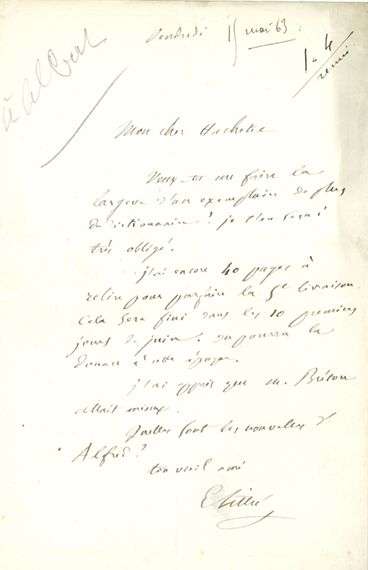 à Albert
Vendredi 15 mai 63
Mon cher Hachette
Veux-tu me faire la
largesse d'un exemplaire de plus
du dictionnaire ? je t'en serai
très obligé.
j'ai encore 40 pages à
relire pour parfaire la 5e livraison.
Cela sera fini dans les 10 premiers
jours de juin. on pourra la
donner à cette époque.
j'ai appris que M. Bréton
allait mieux.
Quelles sont les nouvelles d'
Alfred ?
ton vieil ami
E Littré